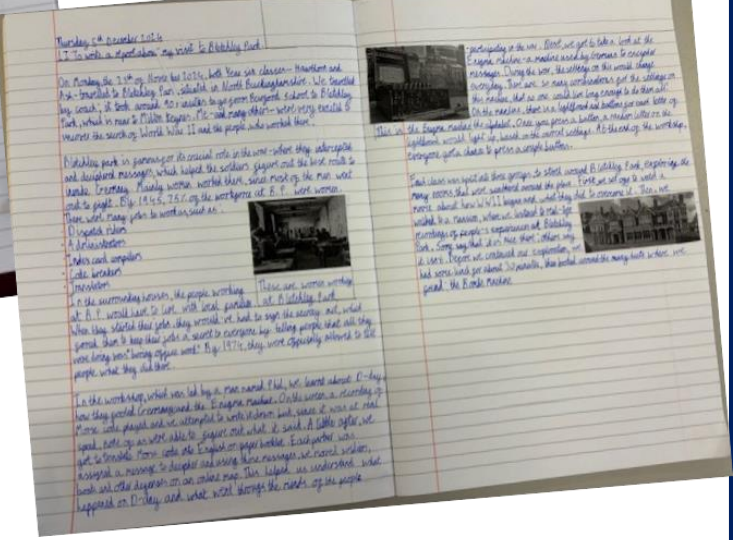 Thursday 5th December 2024
LI: To write a report about my visit to Bletchley Park.
On Monday the 25th of November 2024, both Year six classes - Hawthorn and
Ash - travelled to Bletchley Park, situated in North Buckinghamshire. We travelled
by coach; it took around 90 minutes to go from school to Bletchley
Park, which is near to Milton Keynes. Me - and many others - were very excited to
uncover the secrets of World War II and the people who worked there.
Bletchley park is famous for its crucial role in the war - where they intercepted
and deciphered messages, which helped the soldiers figure out the best route to
invade Germany. Mainly women worked there, since most of the men went
out to fight. By 1945, 75% of the workforce at B.P. were women.
There were many jobs to work as, such as:
· Dispatch riders
· Administrators
· Index card compilers
· Code breakers
· Translators
In the surrounding houses, the people working
at B.P. would have to live with local families.
When they started their jobs, they would've had to sign the secrecy act, which
forced them to keep their jobs a secret to everyone by telling people that all they
were doing was "boring office work". By 1974, they were officially allowed to tell
people what they did there.
These are women working
at Bletchley Park
In the workshop, which was led by a man named Phil, we learnt about D-day,
how they fooled Germany and the Enigma machine. On the screen, a recording of
Morse code played and we attempted to write it down but, since it was at real
speed, none of us were able to figure out what it said. A little after, we
got to translate Morse code into English on paper booklets. Each partner was
assigned a message to decipher and using those messages, we moved soldiers,
boats and other defenses on an online map. This helped us understand what
happened on D-day and what went through the minds of the people
participating in the war. Next, we got to take a look at the
Enigma machine - a machine used by Germans to encypher
messages. During the war, the settings on this would change
everyday. There are so many combinations for the settings on
this machine, that no one could live long enough to do them all.
On the machine, there is a lightboard and buttons for each letter of
This is the Enigma machine the alphabet. Once you press a button, a random letter on the
lightboard would light up based on the current settings. At the end of the workshop,
everyone got a chance to press a couple buttons.
Each class was split into three groups, to stroll around Bletchley Park, exploring the
many rooms that were scattered around the place. First, we all sat to watch a
movie about how WWII began and what they did to overcome it. Then, we
walked to a mansion, where we listened to real-life
recordings of people's experiences at Bletchley
Park. Some say that it is nice there; others say
it isn't. Before we continued our exploration, we
had some lunch for about 30 minutes, then looked around the many huts where we
found: the Bombe Machine